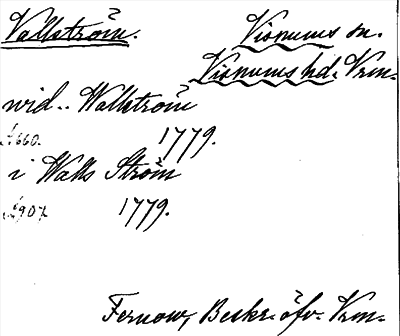 Vallström. Visnums sn.
Visnums hd. Vrm.
vid.. Wallström
s. 660. 1779.
i Walls Ström
s. 907. 1779.
Fernow, Beskr. öfv. Vrm.